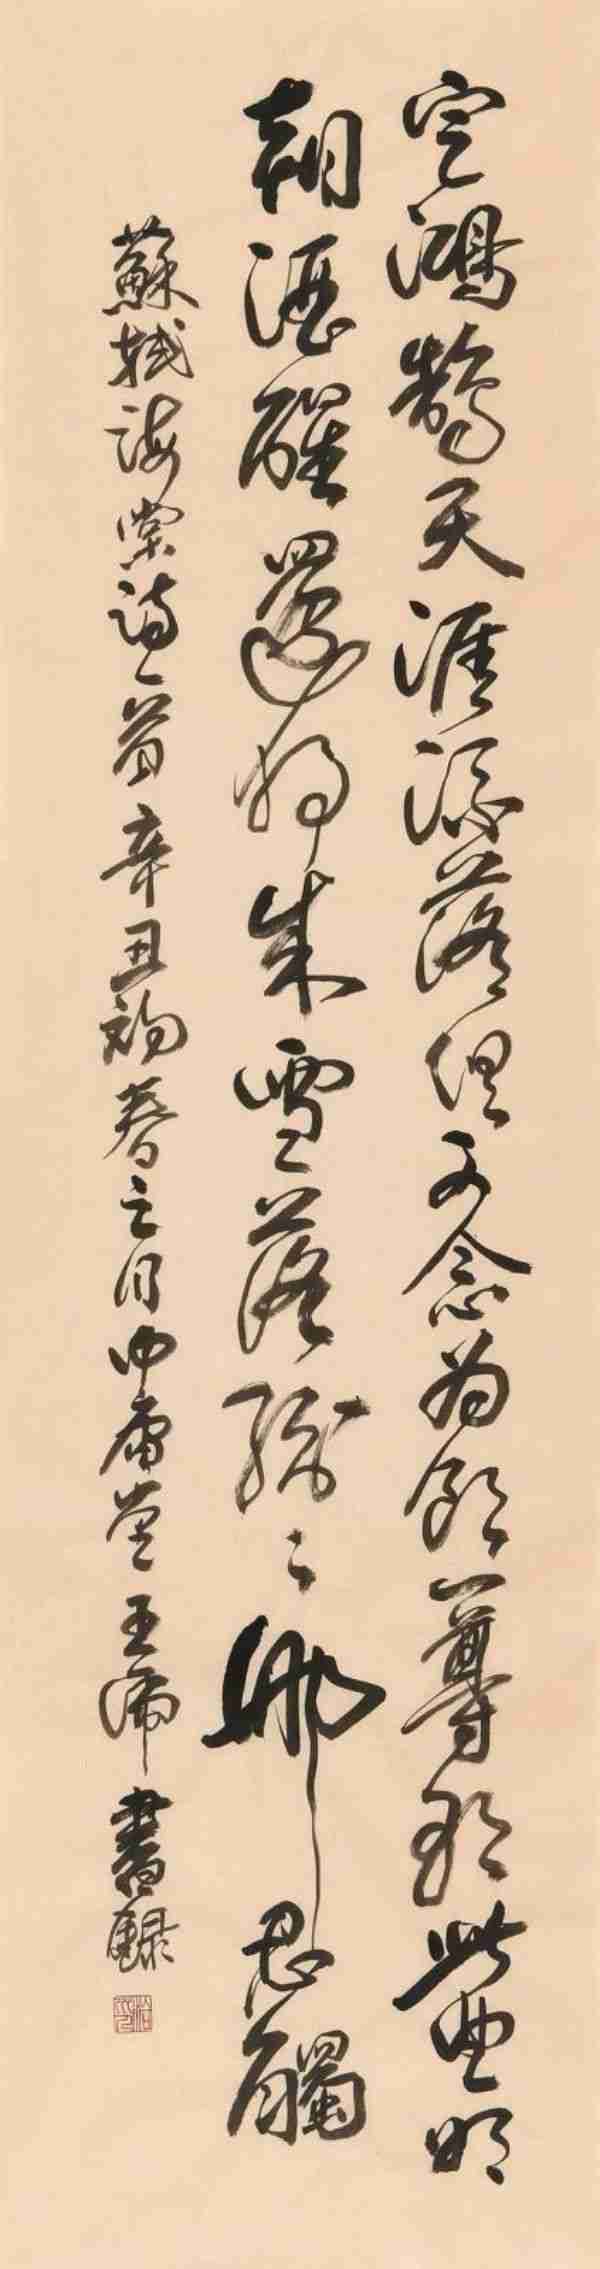 定鴻鵠天涯流落俱可念為飲一尊歌此曲明
朝酒醒還獨來雪落紛〻那忍觸
蘇軾海棠詩一首辛丑初春之月中庸堂王沛書録